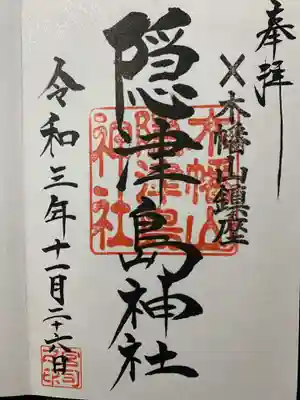 奉拝
木幡山鎮座
隠津島神社
木幡山
隠津島
神社
令和三年十一月二十六日